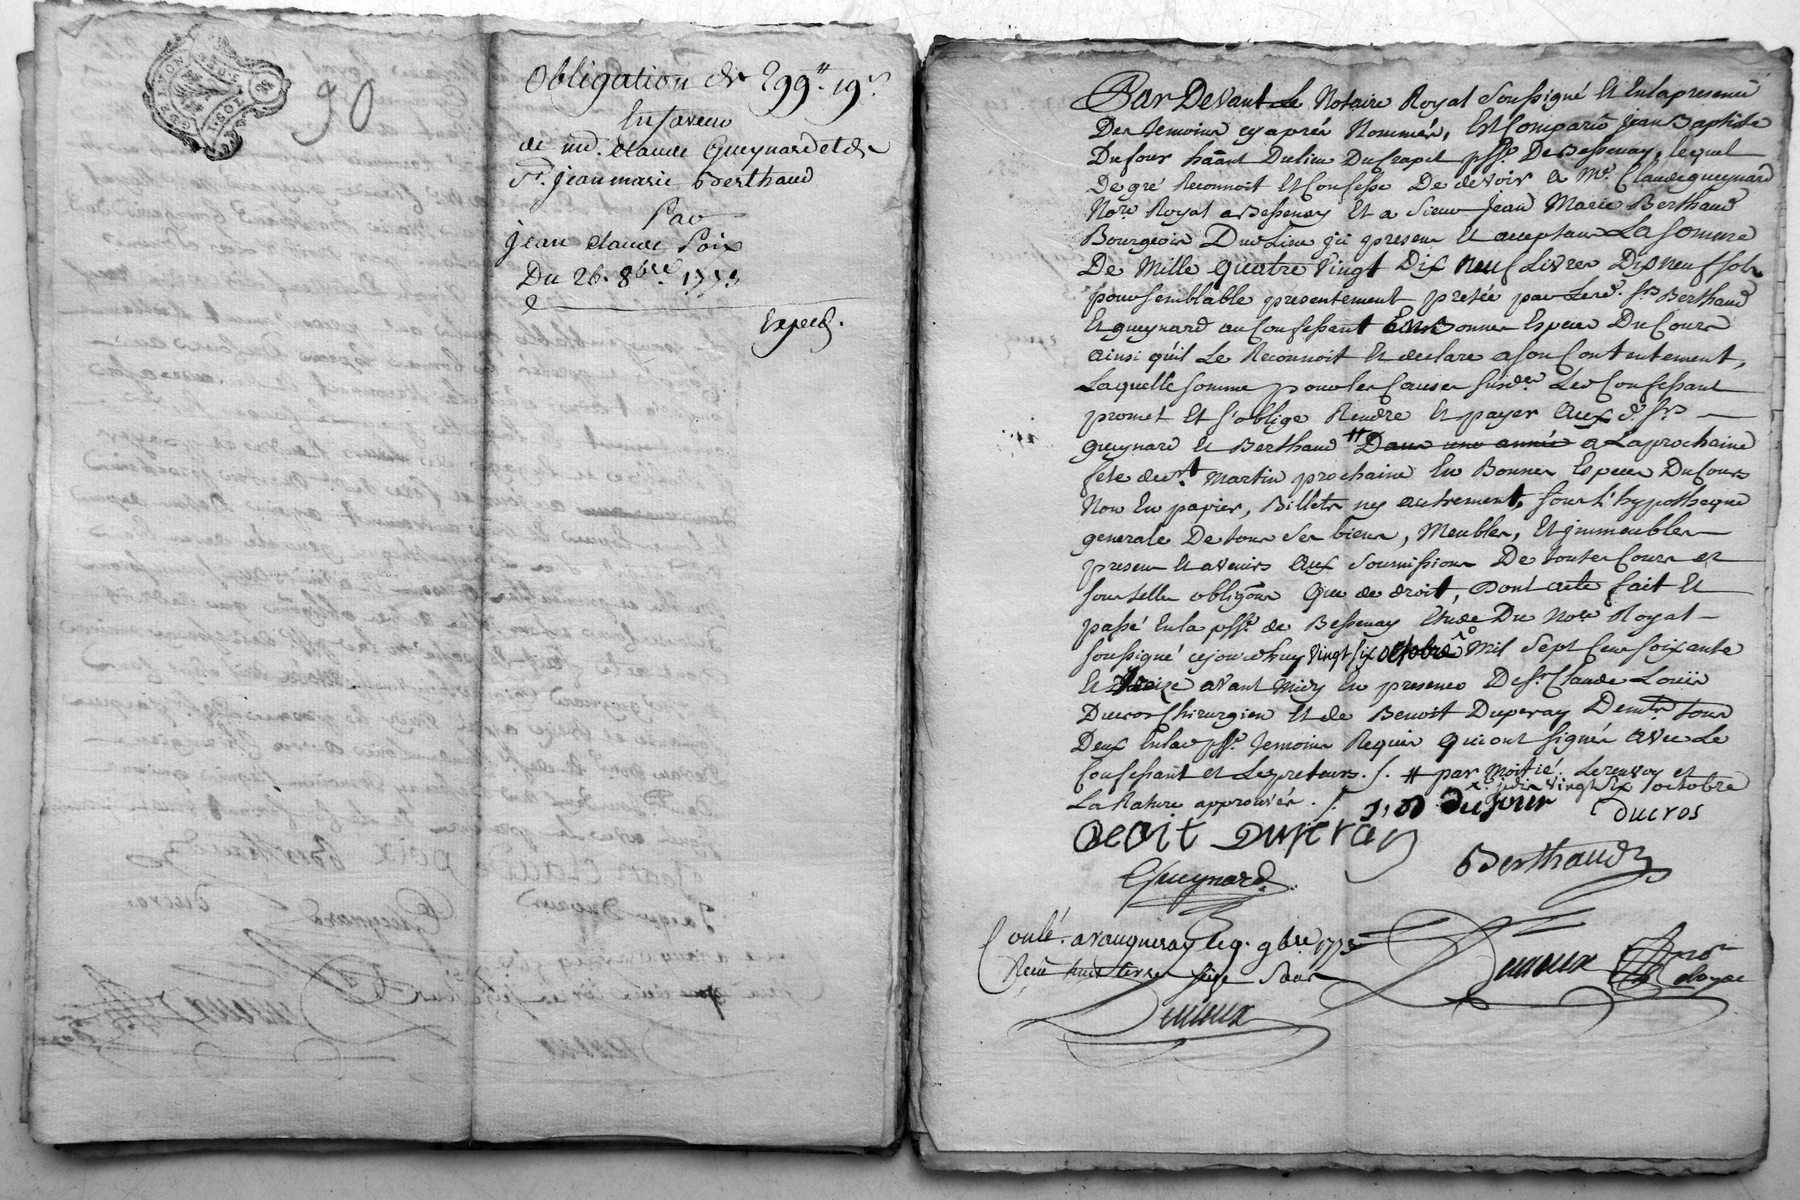 90
Obligation de 299tt. 19s.
En faveur
de md. Claude Gueynard et de
Sr. Jean marie Berthaud
Par
Jean Claude Poix
Du 26. 8bre. 1773
Exped.
Par Devant Le Notaire Royal Soussigné Et En la presence
Des temoins cy aprés Nommés, Est Comparu Jean Baptiste
Dufour hãant Du lieu Du Crapet pss. De Bessenay, lequel
De gré Reconnoit Et Confesse De devoir a Me. Claude gueynard
Nore Royal a Bessenay Et a Sieur Jean Marie Berthaud
Bourgeois Dud Lieu ici present Et acceptans La Somme
De Mille quatre Vingt Dix Neuf Livres Dix Neuf sols
pour semblable presentement pretée par Lesd. Srs Berthaud
Et gueynard au Confessant En Bonnes Especes Du Cours
ainsi qu'il Le Reconnoit Et declare a Son Contentement,
Laquelle somme pour les Causes susdes Led Confessant
promet Et s'oblige Rendre Et payer aux d. Srs
gueynard Et Berthaud # Dans une année a La prochaine
fete de st Martin prochaine En Bonnes Especes Du Cours
Non En papier, Billets ny autrement, sous l'hypotheque
generale De tous Ses biens, Meubles, Et immeubles
presens Et avenirs aux Soumissions De toutes Cours et
sous telles obligõns que de droit, Dont acte fait Et
passé En la pss. de Bessenay Etude Du Nore Royal
soussigné cejourdhuy vingt six octobre Mil Sept Cent soixante
Et treize avant Midy En presence De Sr. Claude Louis
Ducros Chirurgien Et de Benoit Duperay Demts. tous
Deux En lad pss. temoins Requis qui ont signés avec Le
Confessant et Les preteurs. /. # par Moitié. Le renvoy et
La Rature approuvés. /.
vingt Six octobre
J, B Dufour
ducros
Benoit Duperay
Berthaud
Gueynard
Conlé. a vaugneray le 9. 9bre 1773
Reçu
Dumoux
Nore
Royal
Dumoux